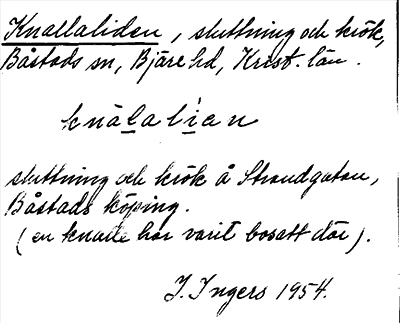 Knallaliden, sluttning och krök,
Båstads sn, Bjäre hd, Krist. län.
knälalian
sluttning och krök å Strandgatan,
Båstads köping.
(en knalle har varit bosatt där).
J. Ingers 1954.